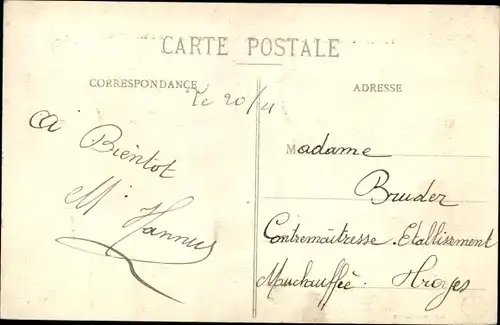 CARTE POSTALE
CORRESPONDANCE
ADRESSE
Le 20/4
à Bientot
M. Hannus
Madame
Bruder
Contremaîtresse. Etablissement
Mauchauffée.